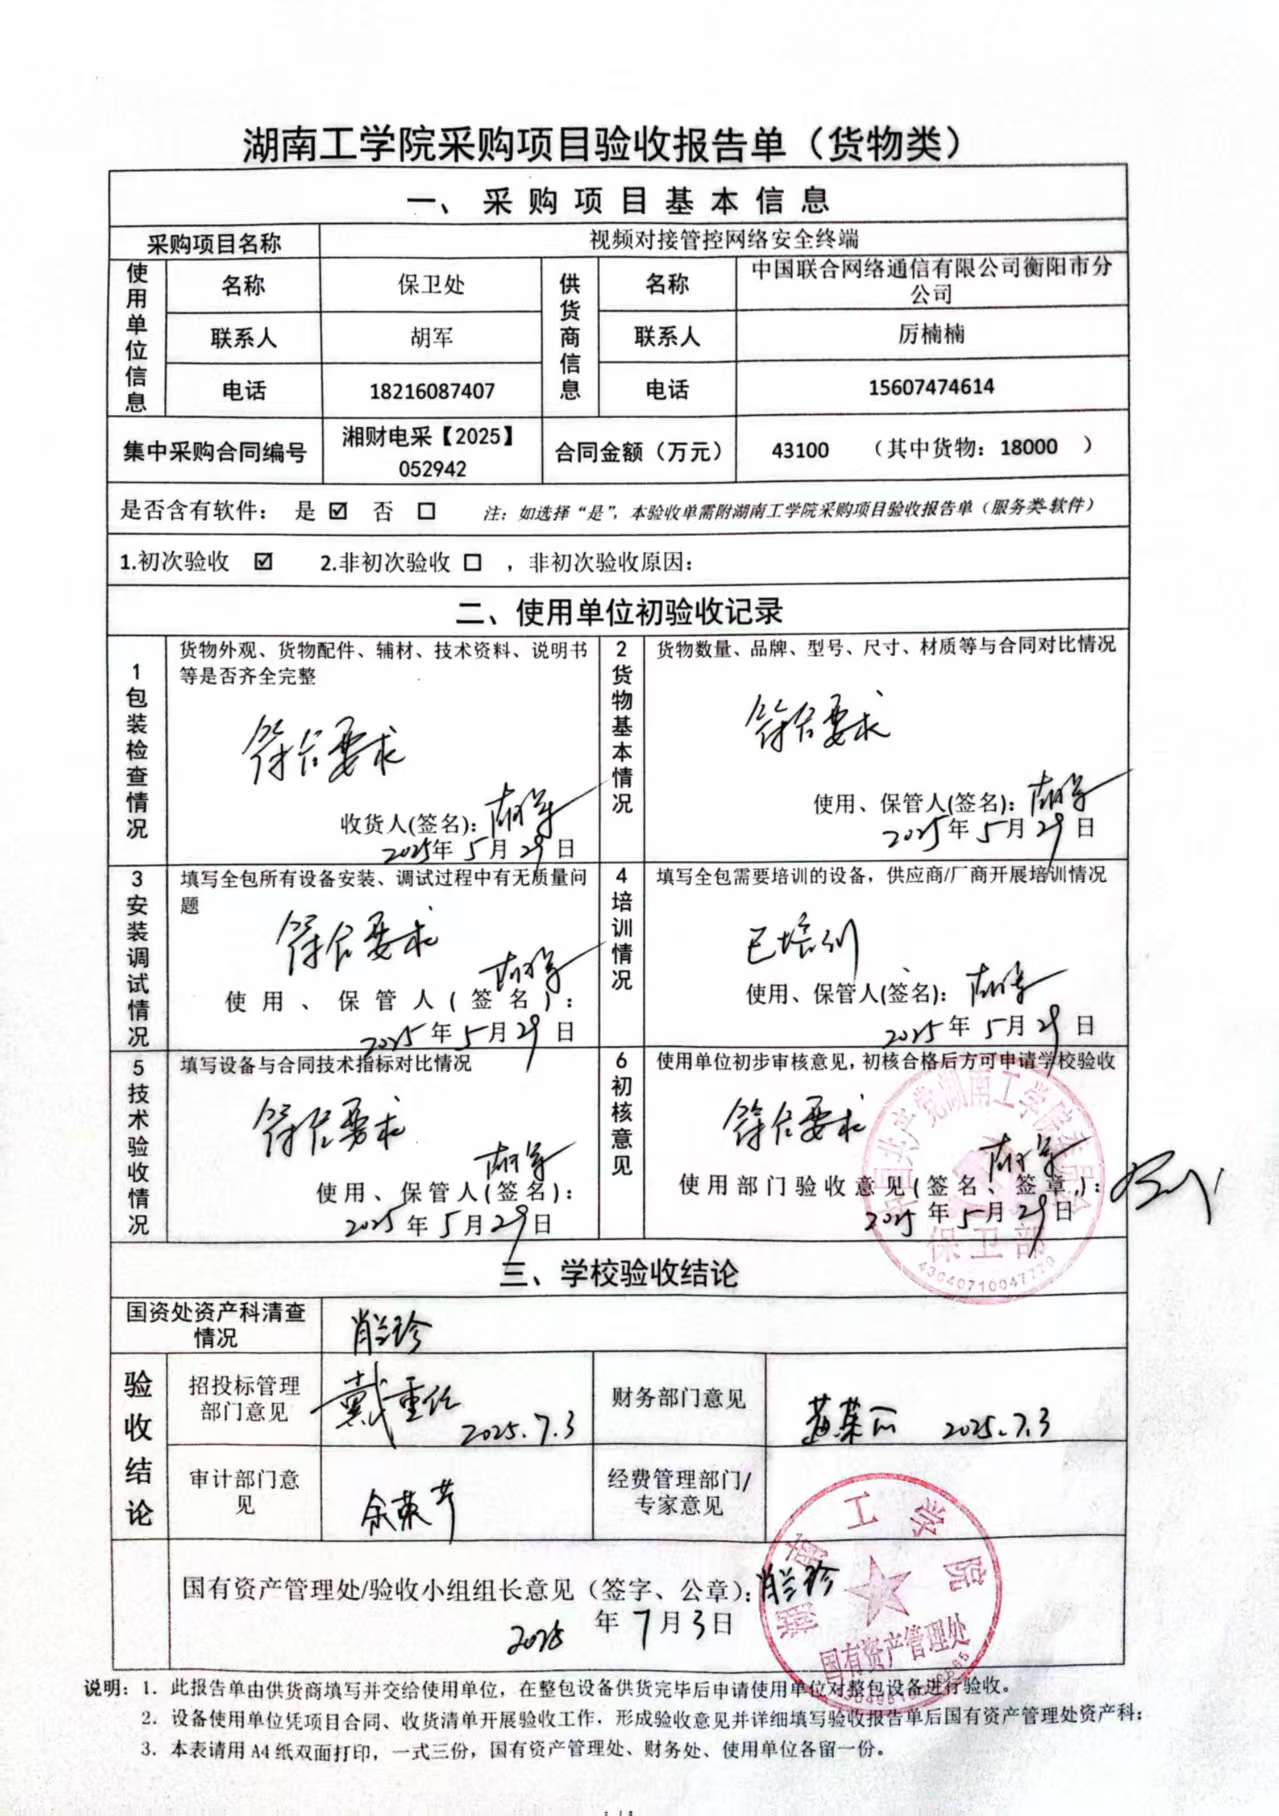 湖南工学院采购项目验收报告单（货物类）
一、采购项目基本信息
采购项目名称 视频对接管控网络安全终端
使用单位信息 名称 保卫处 供货商信息 名称 中国联合网络通信有限公司衡阳市分
公司
联系人 胡军 联系人 厉楠楠
电话 18216087407 电话 15607474614
集中采购合同编号 湘财电采【2025】
052942 合同金额（万元） 43100 （其中货物：18000 ）
是否含有软件： 是 ☑ 否 □ 注：如选择“是”，本验收单需附湖南工学院采购项目验收报告单（服务类-软件）
1.初次验收 ☑ 2.非初次验收 □ ，非初次验收原因：
二、使用单位初验收记录
1包装检查情况
货物外观、货物配件、辅材、技术资料、说明书
等是否齐全完整
符合要求
收货人(签名)：胡军
2025年5月29日
2货物基本情况
货物数量、品牌、型号、尺寸、材质等与合同对比情况
符合要求
使用、保管人(签名)：胡军
2025年5月29日
3安装调试情况
填写全包所有设备安装、调试过程中有无质量问
题
符合要求
胡军
使用、保管人(签名)：
2025年5月29日
4培训情况
填写全包需要培训的设备，供应商/厂商开展培训情况
已培训
使用、保管人(签名)：胡军
2025年5月29日
5技术验收情况
填写设备与合同技术指标对比情况
符合要求
胡军
使用、保管人(签名)：
2025年5月29日
6初核意见
使用单位初步审核意见，初核合格后方可申请学校验收
符合要求
胡军
使用部门验收意见(签名、签章)：
2025年5月29日
中国共产党湖南工学院委员会
保卫部
43040710047770
三、学校验收结论
国资处资产科清查
情况 肖兰珍
验收结论
招投标管理
部门意见 戴重任 2025.7.3
财务部门意见 2025.7.3
审计部门意
见 余荣芹
经费管理部门/
专家意见
国有资产管理处/验收小组组长意见（签字、公章）：肖兰珍
2025年7月3日
湖南工学院
国有资产管理处
说明：1. 此报告单由供货商填写并交给使用单位，在整包设备供货完毕后申请使用单位对整包设备进行验收。
2. 设备使用单位凭项目合同、收货清单开展验收工作，形成验收意见并详细填写验收报告单后国有资产管理处资产科；
3. 本表请用A4纸双面打印，一式三份，国有资产管理处、财务处、使用单位各留一份。